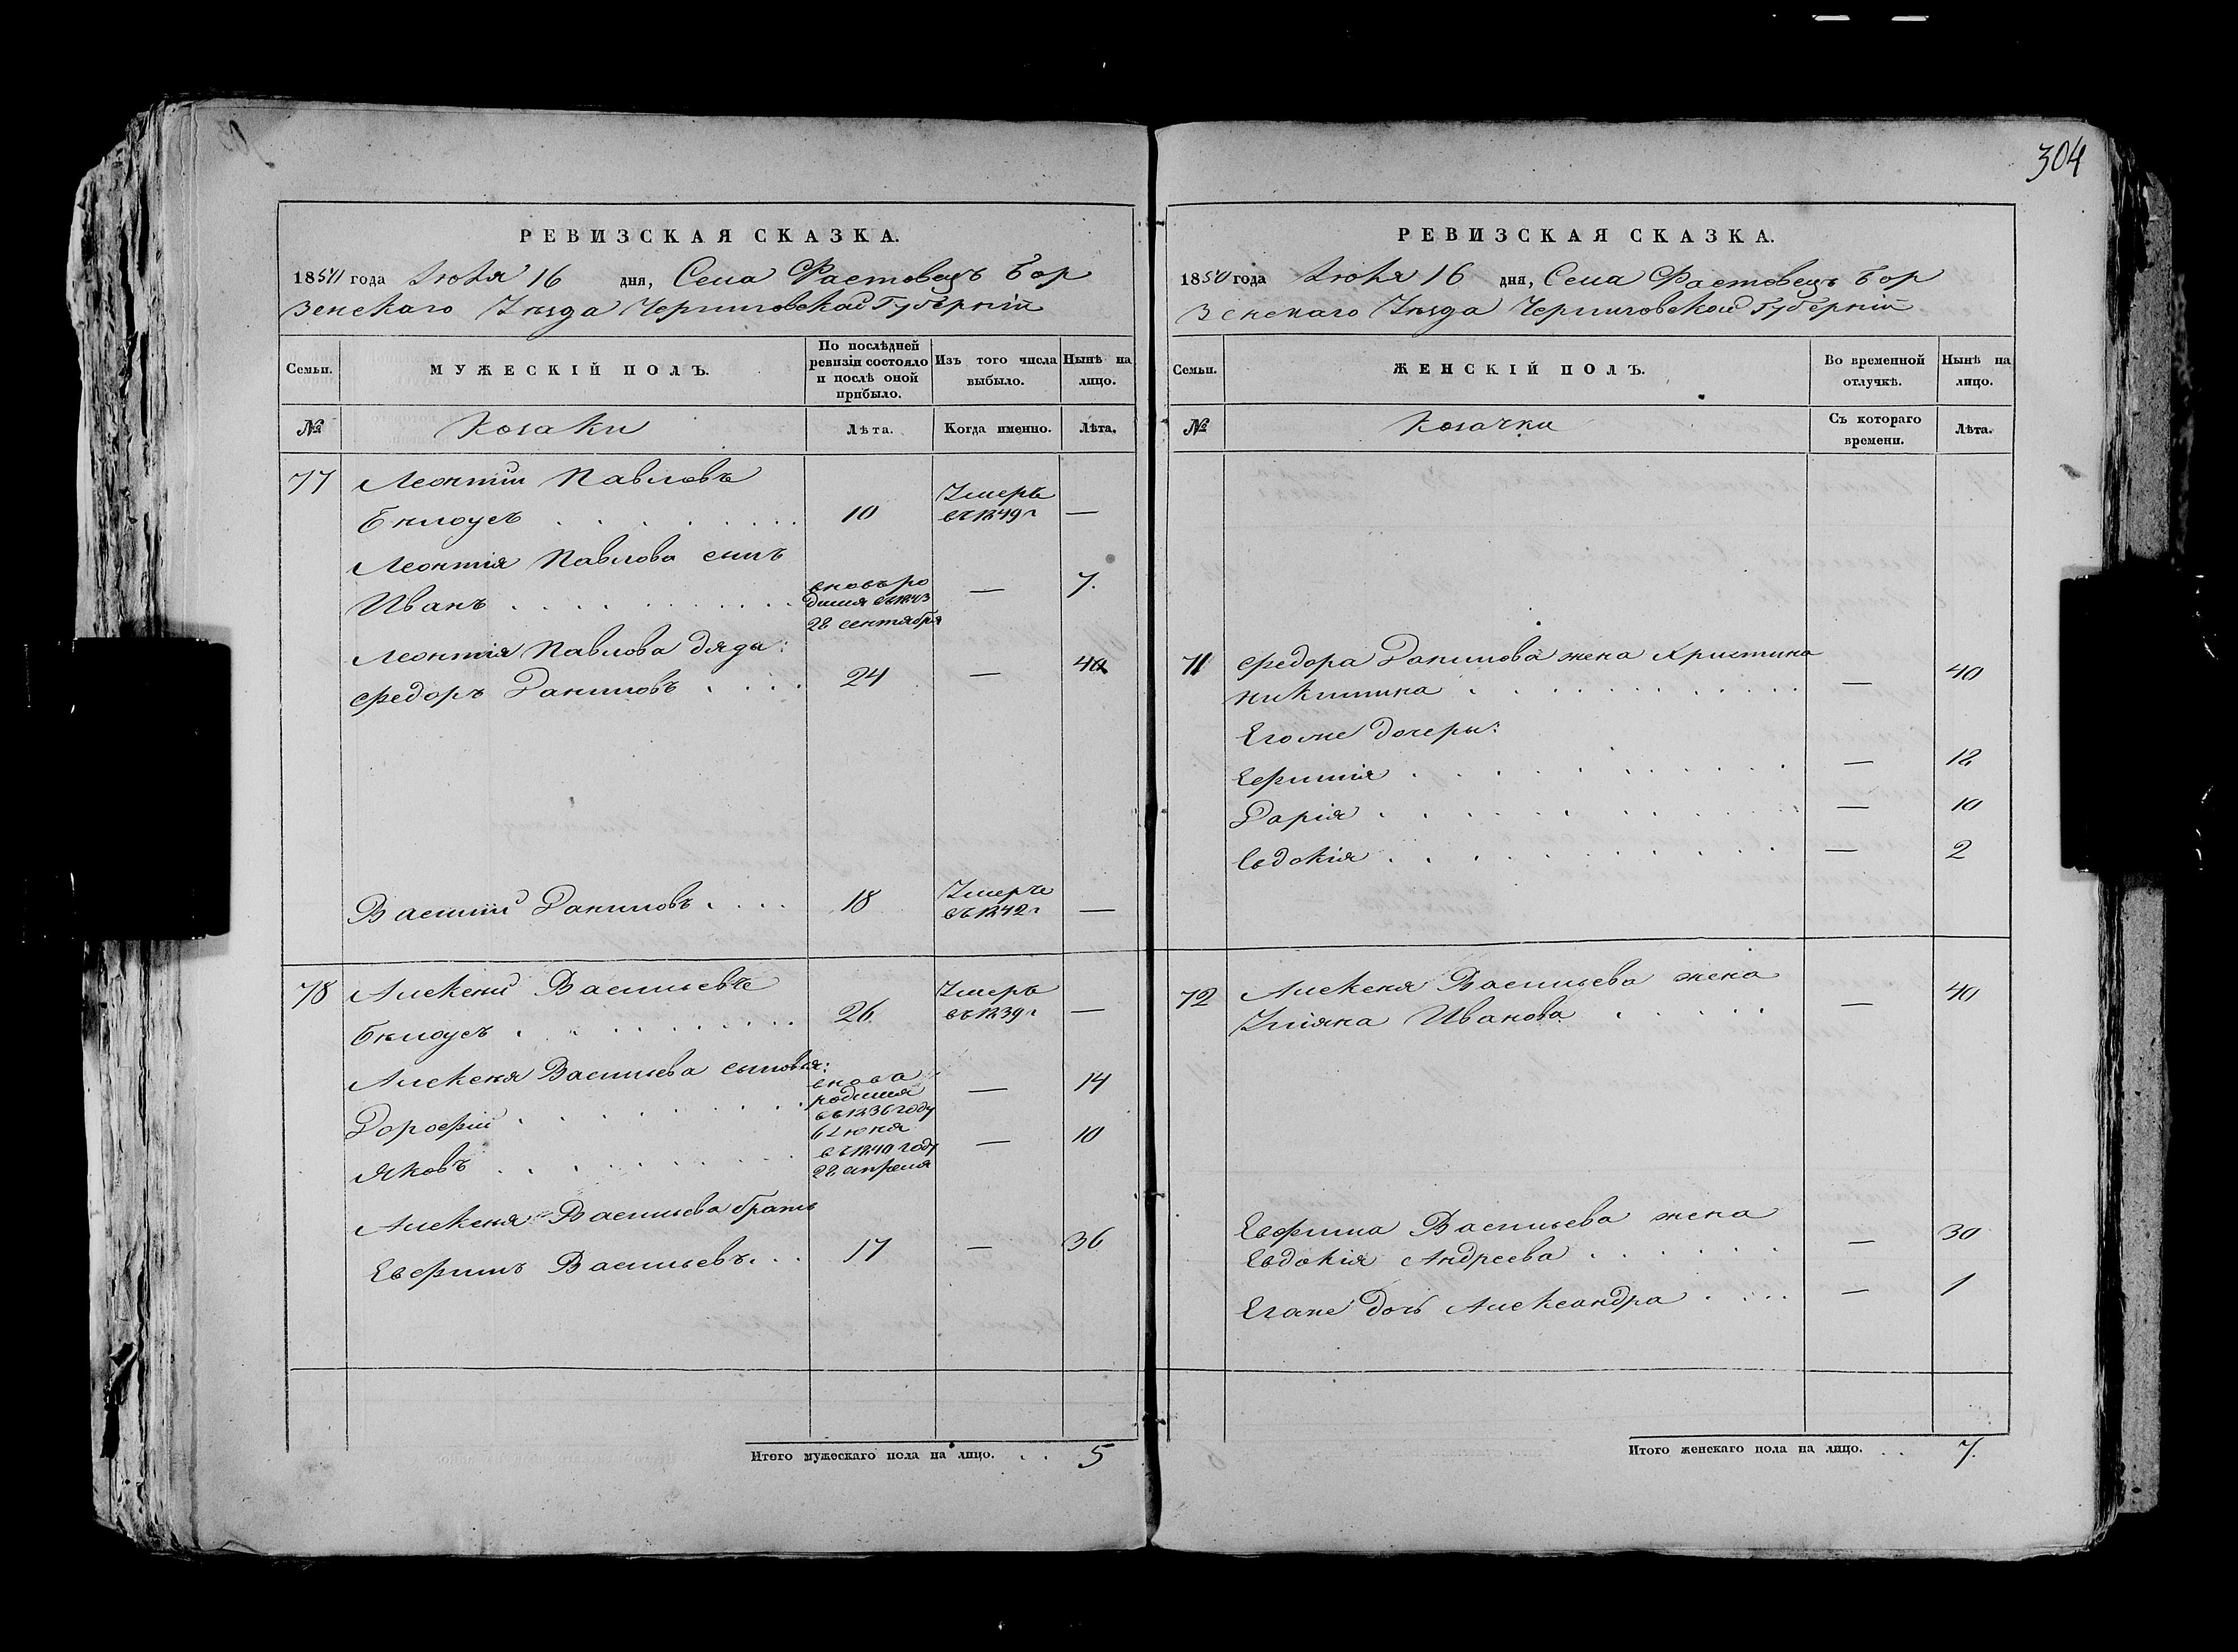 304
РЕВИЗСКАЯ СКАЗКА.
1850 года Іюня 16 дня, Села Фастовецъ Бор
зенскаго Уѣзда Черниговской Губерніи
Семьи.
МУЖЕСКІЙ ПОЛЪ.
По послѣдней
ревизіи состояло
и послѣ оной
прибыло.
Изъ того числа
выбыло.
Нынѣ на
лицо.
№
Козаки
Лѣта.
Когда именно.
Лѣта.
77 Леонтій Павловъ
Бѣлоусъ 10 Умеръ въ 1849 г —
Леонтія Павлова сынъ
Иванъ вновь ро — 7.
дился въ 1843
28 сентября
Леонтія Павлова дядя:
Федоръ Даниловъ 24 — 40
Василій Даниловъ 18 Умеръ въ 1842 г —
78 Алексей Васильевъ
Бѣлоусъ 26 Умеръ въ 1839 г —
Алексея Васильева сыновья:
Дорофій вновь — 14
родился
въ 1836 году
6 Іюня
Яковъ въ 1840 году — 10
28 апреля
Алексея Васильева братъ
Евфимъ Васильевъ 17 — 36
Итого мужескаго пола на лицо. . . 5
РЕВИЗСКАЯ СКАЗКА.
1850 года Іюня 16 дня, Села Фастовецъ Бор
зенскаго Уѣзда Черниговской Губерніи
Семьи.
ЖЕНСКІЙ ПОЛЪ.
Во временной
отлучкѣ.
Нынѣ на
лицо.
№
Козачки
Съ котораго
времени.
Лѣта.
71 Федора Данилова жена Христина
Никитина — 40
Егоже дочери:
Ефимія — 12
Дарія — 10
Евдокія — 2
72 Алексея Васильева жена
Уліяна Иванова — 40
Евфима Васильева жена
Евдокія Андреева — 30
Егоже дочь Александра — 1
Итого женскаго пола на лицо. . . 7.